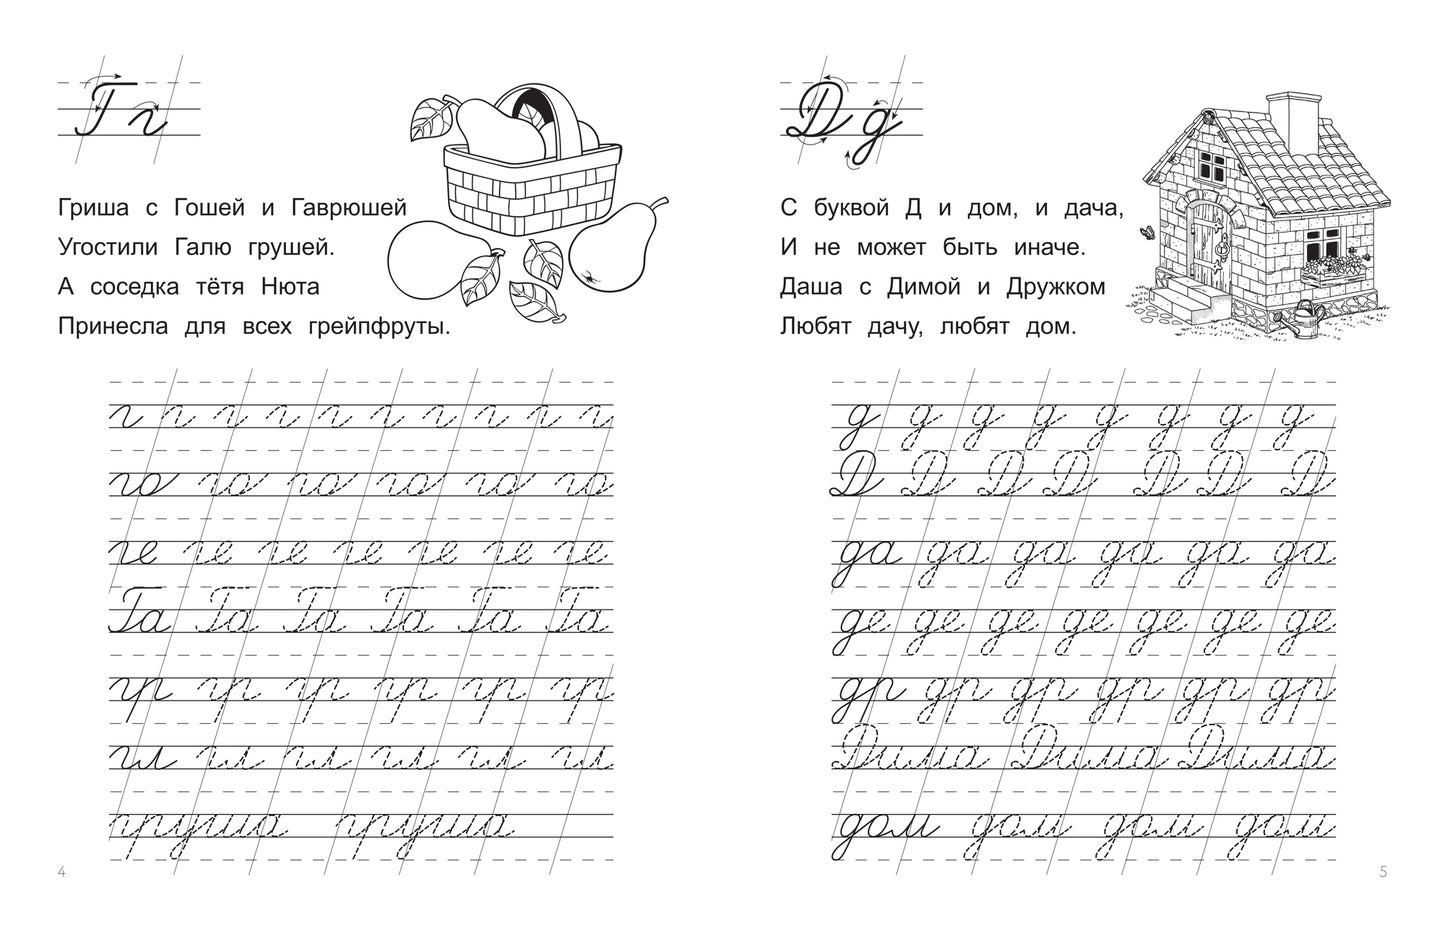 Г г
Гриша с Гошей и Гаврюшей
Угостили Галю грушей.
А соседка тётя Нюта
Принесла для всех грейпфруты.
г г г г г г г г г г
го го го го го го
ге ге ге ге ге ге ге
Га Га Га Га Га Га
гр гр гр гр гр гр
гл гл гл гл гл гл
груша груша
4
Д д
С буквой Д и дом, и дача,
И не может быть иначе.
Даша с Димой и Дружком
Любят дачу, любят дом.
д д д д д д д д
Д Д Д Д Д Д Д
да да да да да да
де де де де де де де
др др др др др др
Дима Дима Дима
дом дом дом дом
5